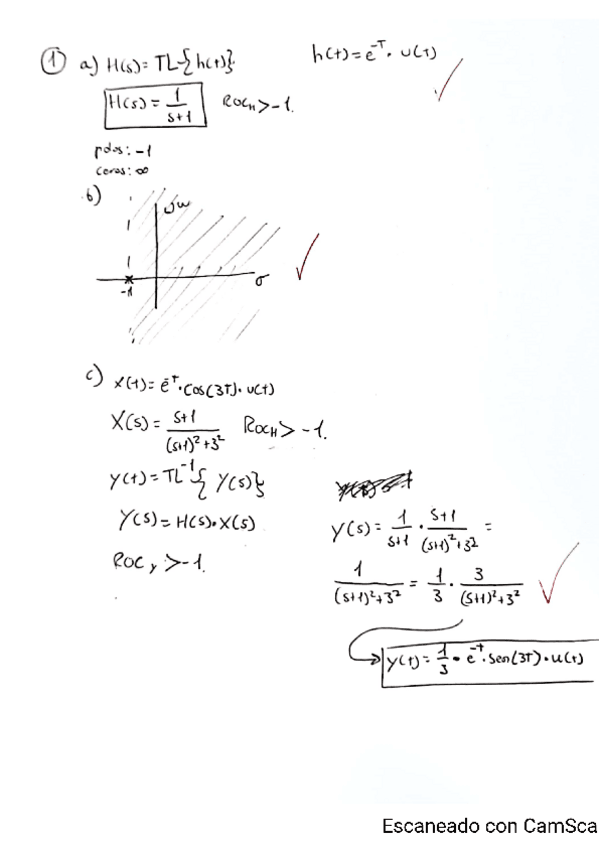 ① a) H(s) = TL{h(t)}     h(t) = e^-T · u(T)
H(s) = 1/(s+1)   ROC_H > -1.
polos: -1
ceros: ∞
b)
jw
-1   σ
c) x(t) = e^-T · cos(3T) · u(t)
X(s) = (s+1)/((s+1)²+3²)   ROC_H > -1.
y(t) = TL^-1{Y(s)}
Y(s) = H(s) · X(s)
ROC_y > -1.
Y(s) = 1/(s+1) · (s+1)/((s+1)²+3²) =
1/((s+1)²+3²) = 1/3 · 3/((s+1)²+3²)
y(t) = 1/3 · e^-t · sen(3T) · u(t)
Escaneado con CamSca